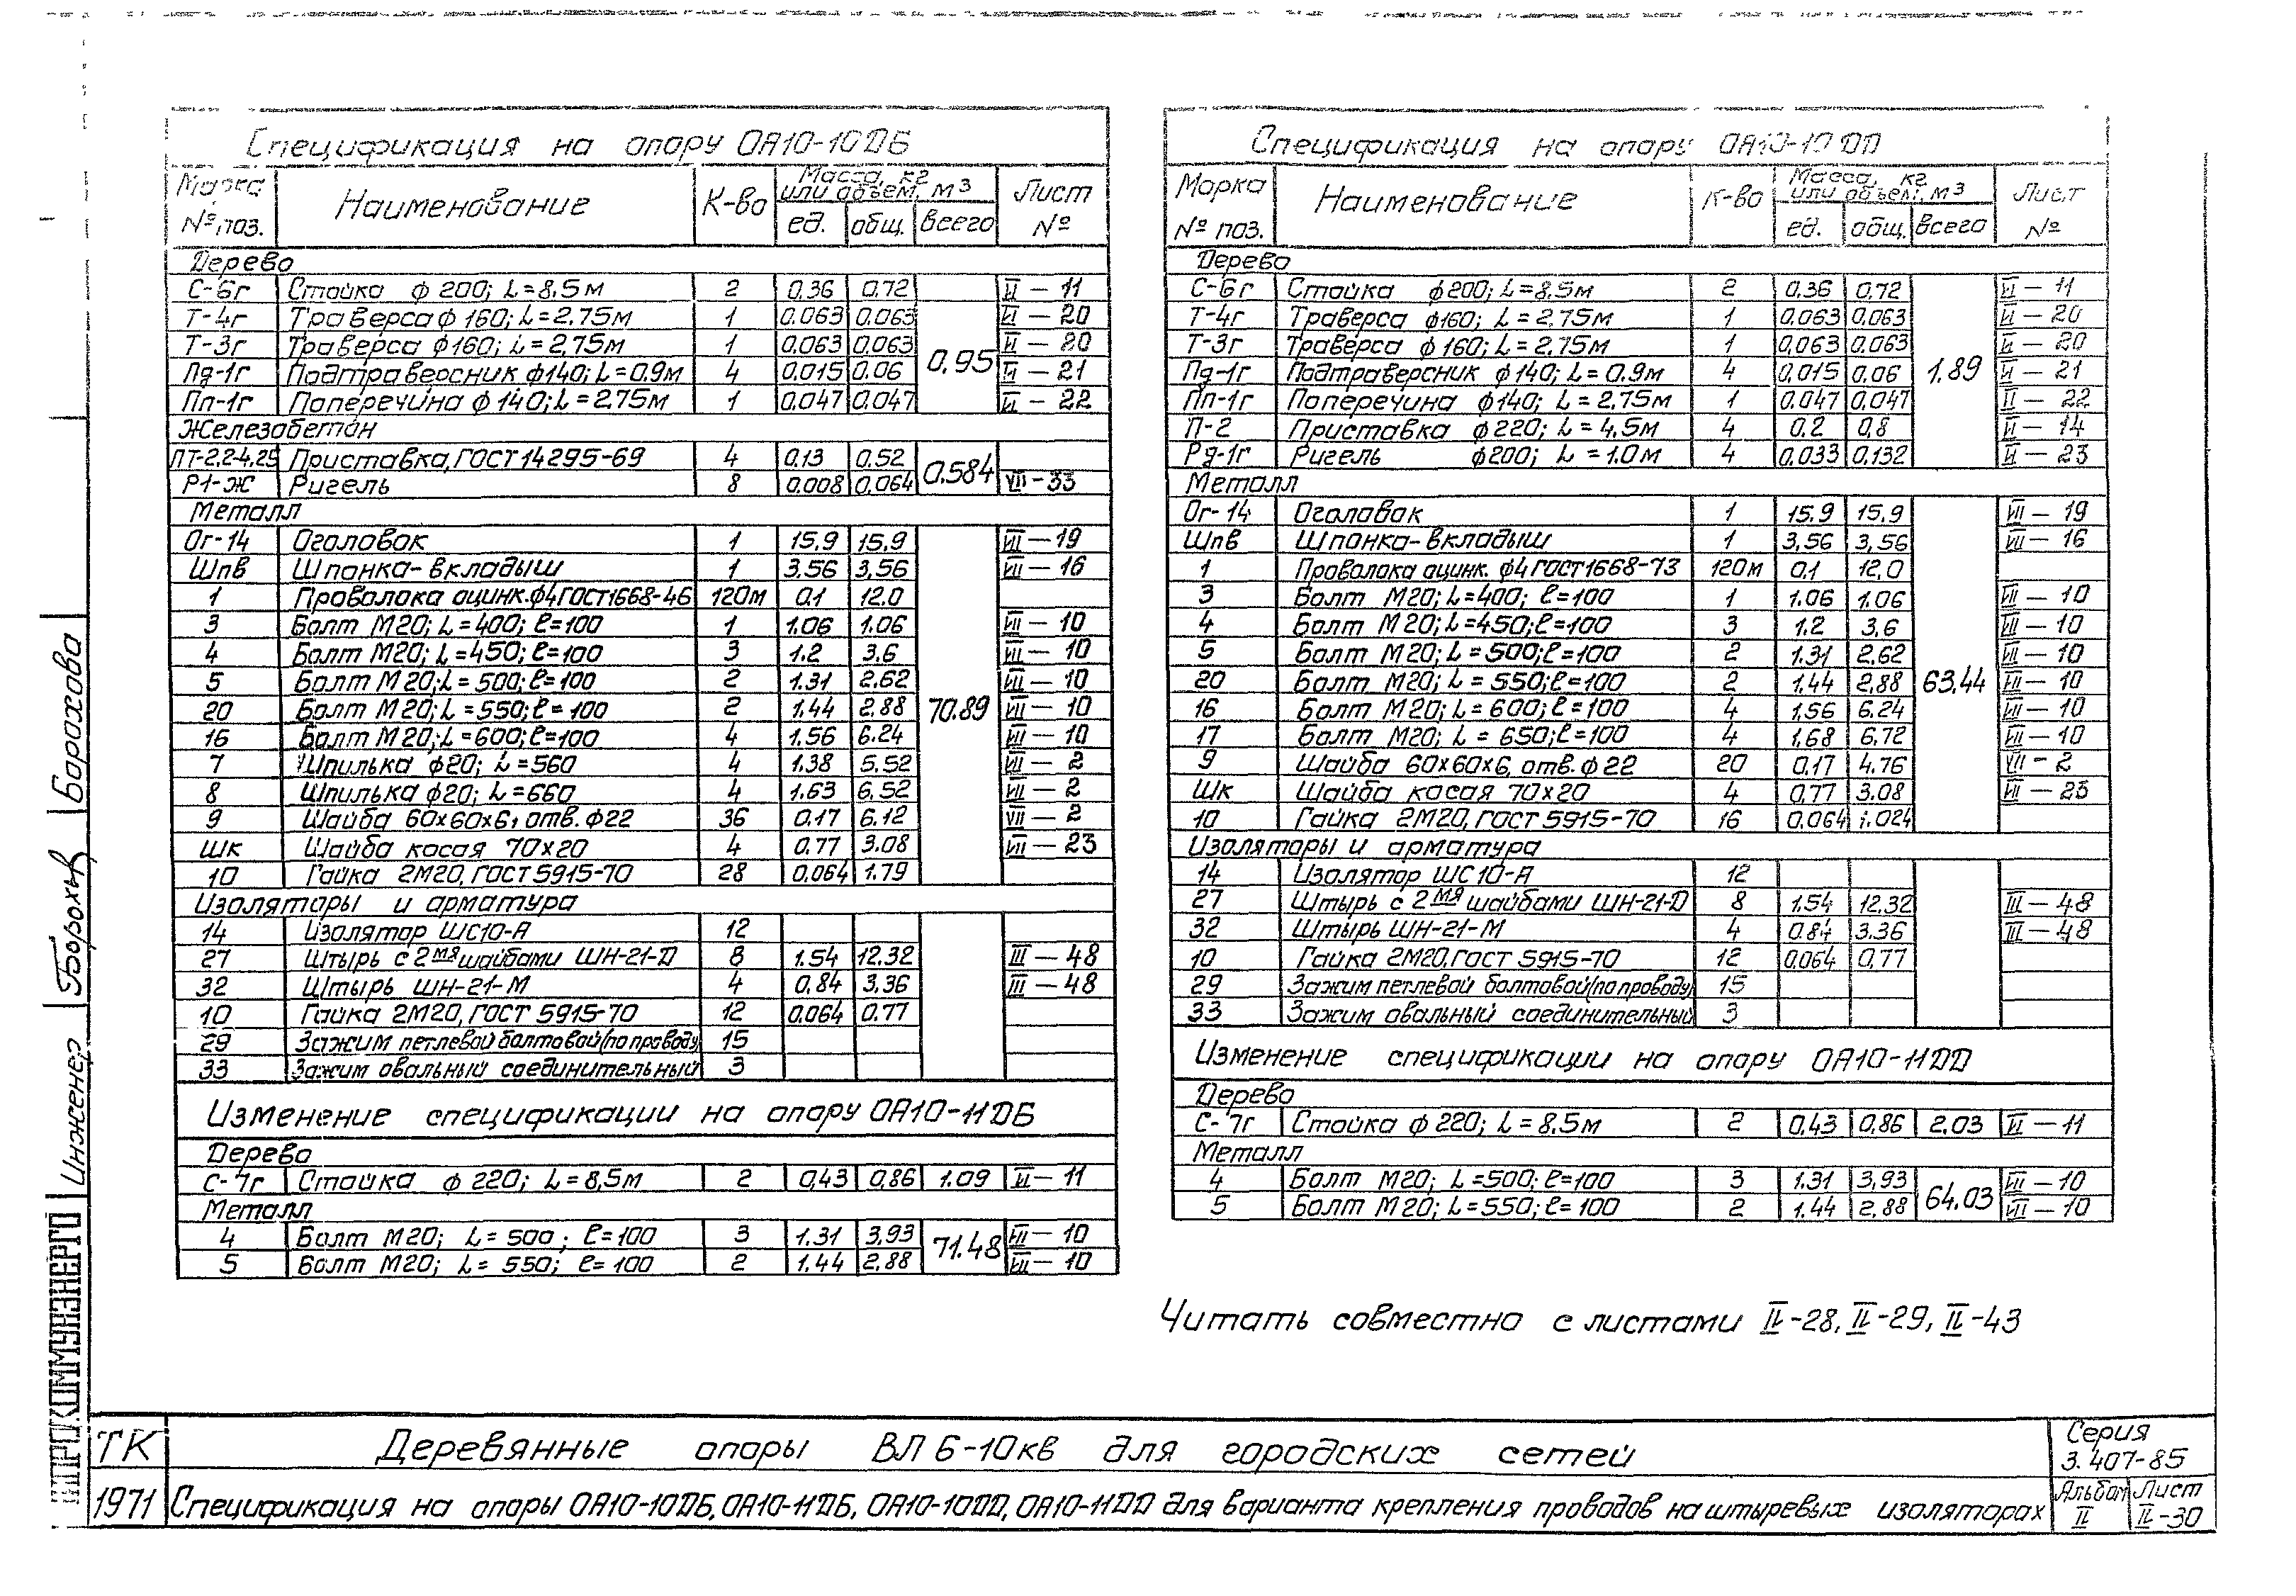 Спецификация на опору ОА10-10ДБ
Марка № поз. Наименование К-во Масса, кг или объем, м3 ед. общ. всего Лист №
Дерево
С-6г Стойка ф 200; L=8.5м 2 0.36 0.72 0.95 II – 11
Т-4г Траверса ф 160; L=2.75м 1 0.063 0.063 II – 20
Т-3г Траверса ф160; L=2.75м 1 0.063 0.063 II – 20
Пд-1г Подтраверсник ф140; L=0.9м 4 0.015 0.06 II – 21
Пп-1г Поперечина ф 140; L=2.75м 1 0.047 0.047 II – 22
Железобетон
ПТ-2,2-4,25 Приставка, ГОСТ 14295-69 4 0.13 0.52 0.584
Р1-ж Ригель 8 0.008 0.064 VII-33
Металл
Ог-14 Оголовок 1 15.9 15.9 70.89 VII – 19
Шпв Шпонка-вкладыш 1 3.56 3,56 VII – 16
1 Проволока оцинк. ф4 ГОСТ1668-46 120м 0.1 12.0
3 Болт М20; L=400; ℓ=100 1 1.06 1.06 VII – 10
4 Болт М20; L=450; ℓ=100 3 1.2 3.6 VII – 10
5 Болт М20; L=500; ℓ=100 2 1.31 2.62 VII – 10
20 Болт М20; L=550; ℓ=100 2 1.44 2.88 VII – 10
16 Болт М20; L=600; ℓ=100 4 1.56 6.24 VII – 10
7 Шпилька ф20; L=560 4 1.38 5.52 VII – 2
8 Шпилька ф20; L=660 4 1.63 6.52 VII – 2
9 Шайба 60x60x6, отв. ф22 36 0.17 6.12 VII – 2
ШК Шайба косая 70x20 4 0.77 3.08 VII – 23
10 Гайка 2М20, ГОСТ 5915-70 28 0.064 1.79
Изоляторы и арматура
14 Изолятор ШС10-А 12
27 Штырь с 2мя шайбами ШН-21-Д 8 1.54 12.32 III – 48
32 Штырь ШН-21-М 4 0.84 3.36 III – 48
10 Гайка 2М20, ГОСТ 5915-70 12 0.064 0.77
29 Зажим петлевой болтовой (по проводу) 15
33 Зажим овальный соединительный 3
Изменение спецификации на опору ОА10-11ДБ
Дерево
С-7г Стойка ф 220; L=8,5м 2 0,43 0,86 1.09 II – 11
Металл
4 Болт М20; L=500; ℓ=100 3 1.31 3.93 71.48 VII – 10
5 Болт М20; L=550; ℓ=100 2 1.44 2.88 VII – 10
Спецификация на опору ОА10-10ДД
Марка № поз. Наименование К-во Масса, кг или объем, м3 ед. общ. всего Лист №
Дерево
С-6г Стойка ф200; L=8.5м 2 0.36 0.72 1.89 II – 11
Т-4г Траверса ф160; L=2,75м 1 0.063 0.063 II – 20
Т-3г Траверса ф160; L=2.75м 1 0.063 0.063 II – 20
Пд-1г Подтраверсник ф140; L=0.9м 4 0.015 0.06 II – 21
Пп-1г Поперечина ф140; L=2,75м 1 0.047 0.047 II – 22
П-2 Приставка ф220; L=4,5м 4 0.2 0,8 II – 14
Рд-1г Ригель ф200; L=1.0м 4 0.033 0.132 II – 23
Металл
Ог-14 Оголовок 1 15.9 15,9 63,44 VII – 19
Шпв Шпонка-вкладыш 1 3,56 3,56 VII – 16
1 Проволока оцинк. ф4 ГОСТ1668-73 120м 0.1 12,0
3 Болт М20; L=400; ℓ=100 1 1.06 1.06 VII – 10
4 Болт М20; L=450; ℓ=100 3 1.2 3,6 VII – 10
5 Болт М20; L=500; ℓ=100 2 1.31 2.62 VII – 10
20 Болт М20; L=550; ℓ=100 2 1.44 2.88 VII – 10
16 Болт М20; L=600; ℓ=100 4 1.56 6.24 VII – 10
17 Болт М20; L=650; ℓ=100 4 1.68 6.72 VII – 10
9 Шайба 60x60x6, отв. ф22 20 0.17 4.76 VII – 2
Шк Шайба косая 70x20 4 0,77 3.08 VII – 23
10 Гайка 2М20, ГОСТ 5915-70 16 0.064 1.024
Изоляторы и арматура
14 Изолятор ШС10-А 12
27 Штырь с 2мя шайбами ШН-21-Д 8 1.54 12.32 III – 48
32 Штырь ШН-21-М 4 0.84 3.36 III – 48
10 Гайка 2М20, ГОСТ 5915-70 12 0.064 0,77
29 Зажим петлевой болтовой (по проводу) 15
33 Зажим овальный соединительный 3
Изменение спецификации на опору ОА10-11ДД
Дерево
С-7г Стойка ф 220; L=8.5м 2 0,43 0.86 2.03 II – 11
Металл
4 Болт М20; L=500; ℓ=100 3 1.31 3,93 64.03 VII – 10
5 Болт М20; L=550; ℓ=100 2 1.44 2,88 VII – 10
Читать совместно с листами II-28, II-29, II-43
ГИПРОКОММУНЭНЕРГО Инженер Барахова
ТК Деревянные опоры ВЛ 6-10кв для городских сетей Серия 3.407-85
1971 Спецификация на опоры ОА10-10ДБ, ОА10-11ДБ, ОА10-10ДД, ОА10-11ДД для варианта крепления проводов на штыревых изоляторах Альбом II Лист II-30